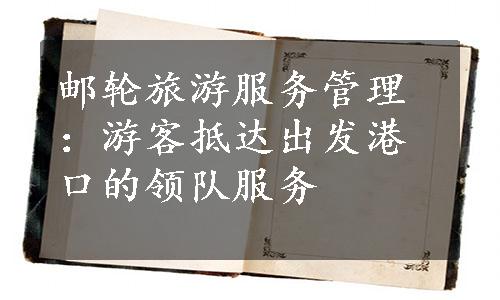 邮轮旅游服务管理
：游客抵达出发港
口的领队服务